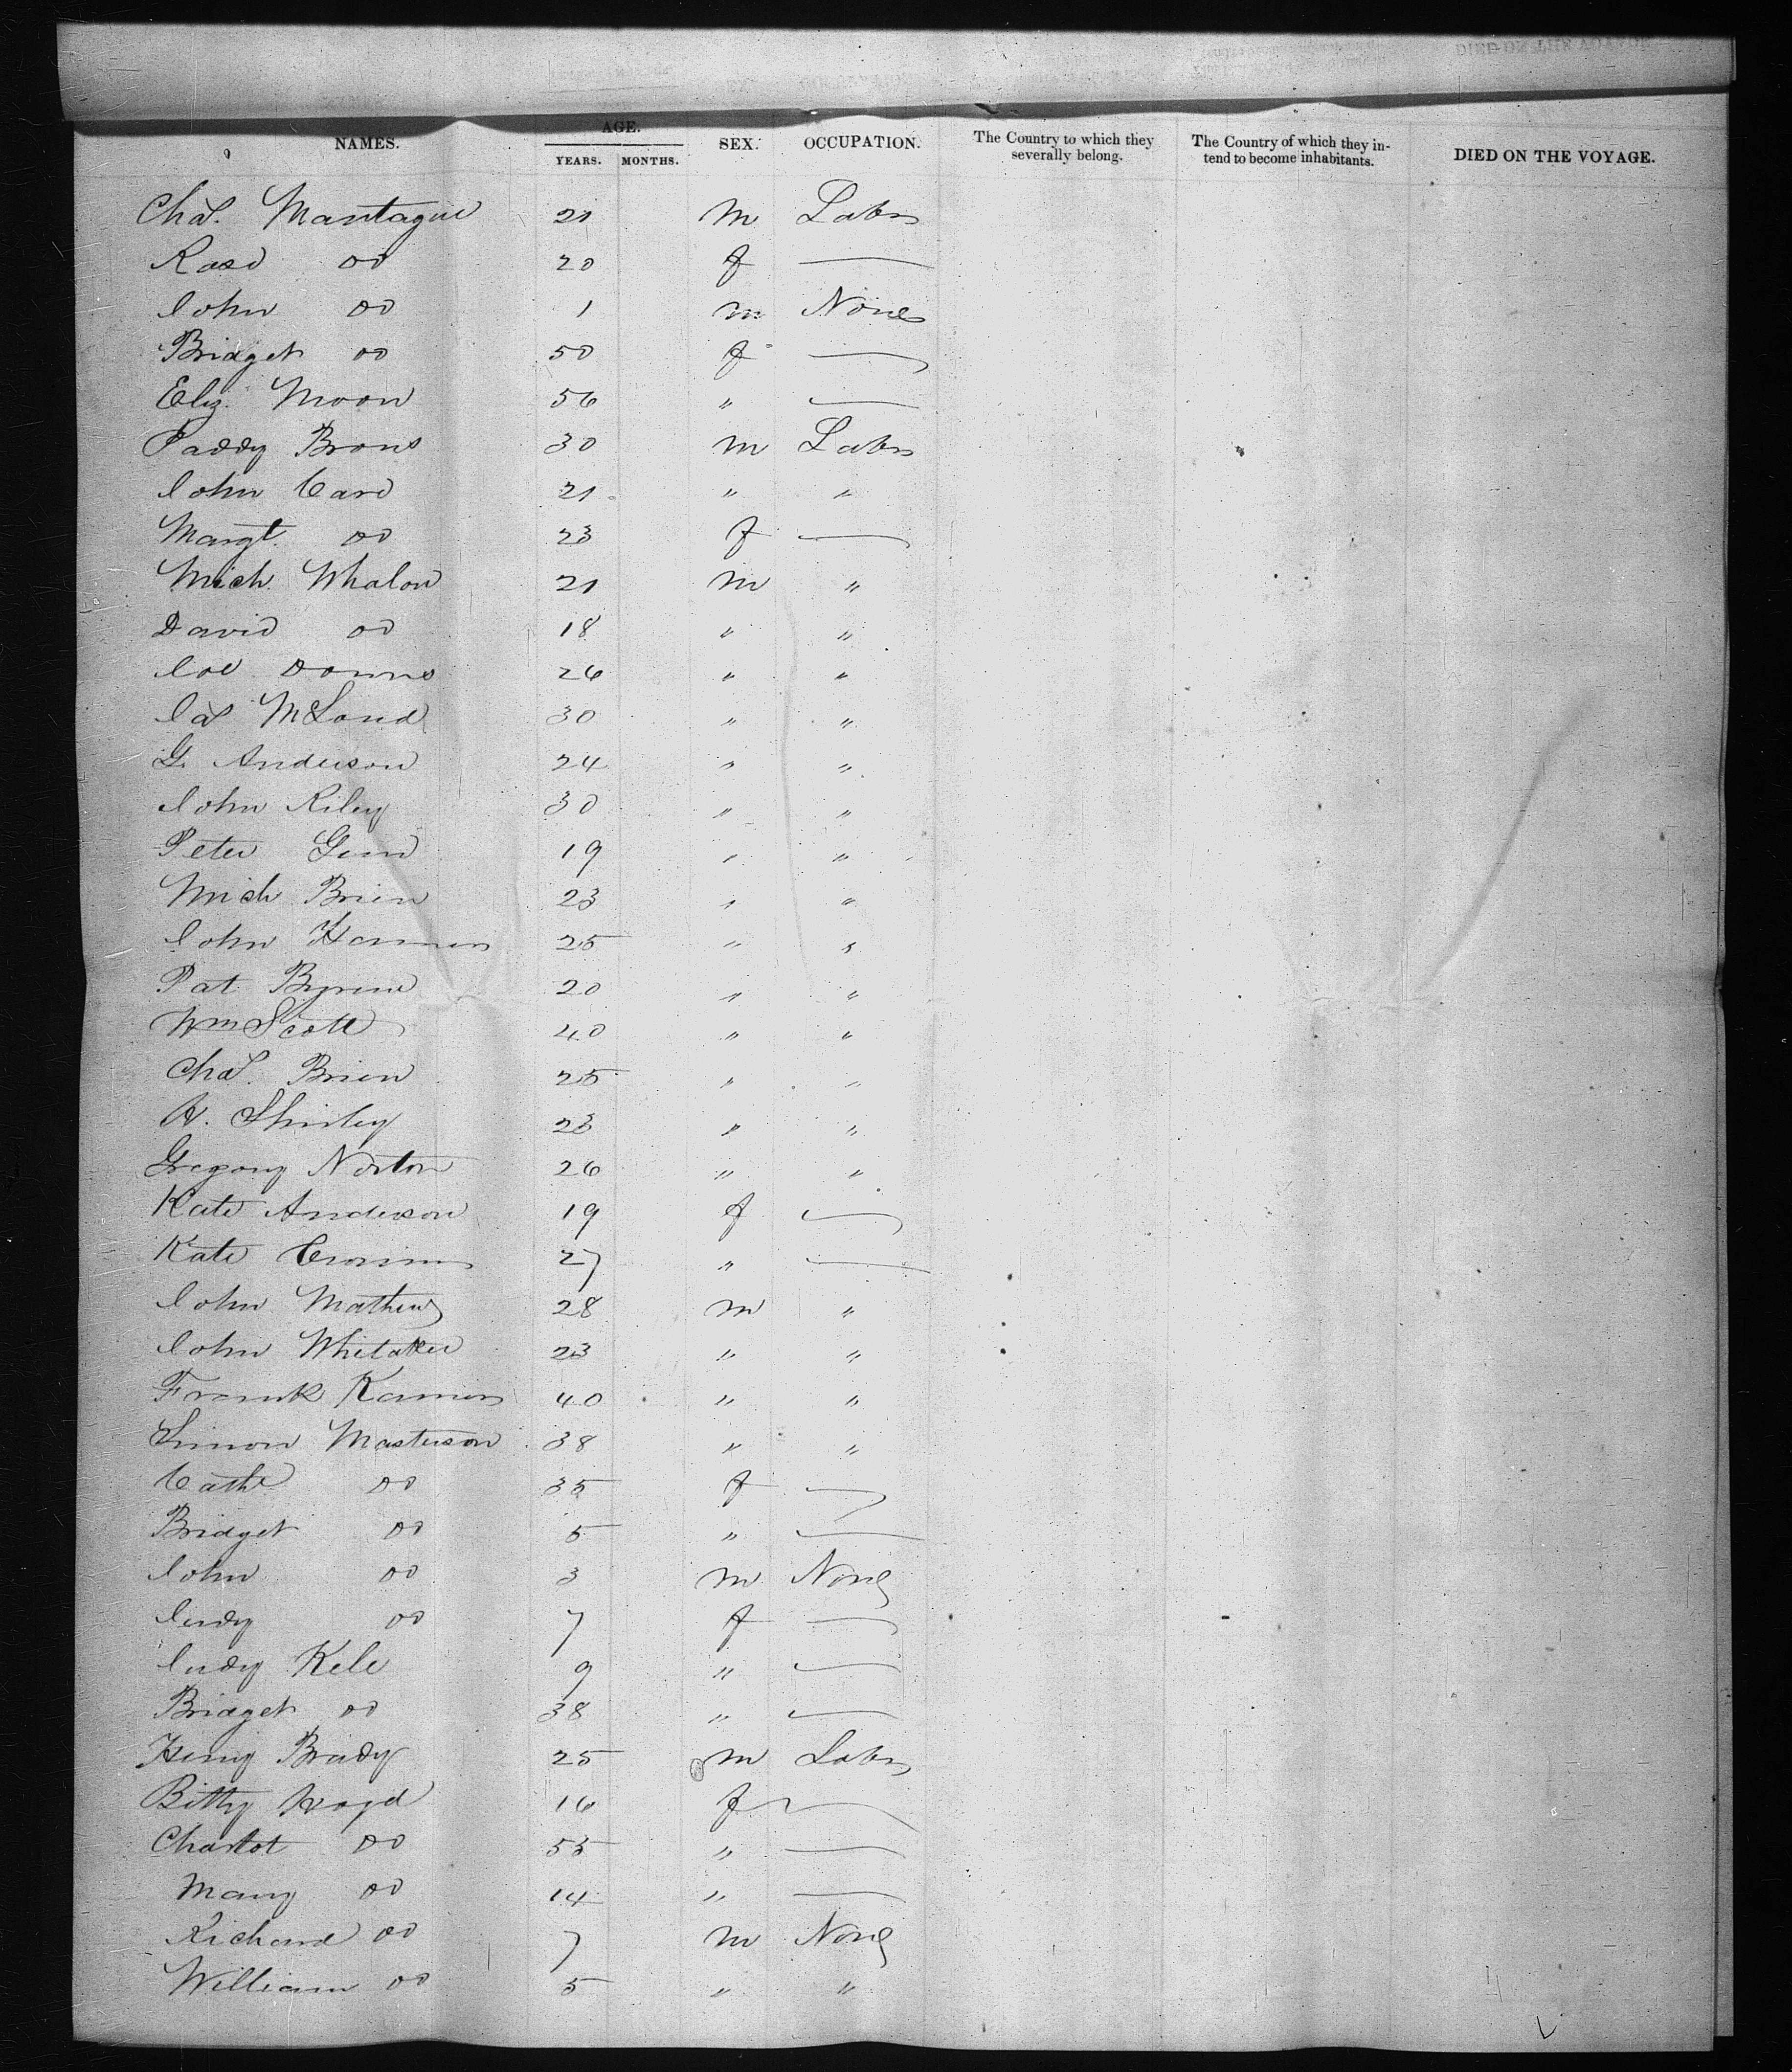 NAMES. AGE. SEX. OCCUPATION. The Country to which they severally belong. The Country of which they intend to become inhabitants. DIED ON THE VOYAGE.
YEARS. MONTHS.
Chas. Mantague 21 m Labr
Rose do 20 f —
John do 1 m None
Bridget do 50 f —
Eliz. Moon 56 " —
Paddy Brons 30 m Labr
John Care 21 " "
Margt. do 23 f —
Mich. Whalon 21 m "
David do 18 " "
Joe Downs 26 " "
Jas 30 " "
G. Anderson 24 " "
John Riley 30 " "
Peter 19 " "
Mich Brien 23 " "
John 25 " "
Pat Byrne 20 " "
Wm Scott 40 " "
Chas. Brien 25 " "
H. Shirley 23 " "
Gregory Norton 26 " "
Kate Anderson 19 f —
Kate 27 " —
John Mathews 28 m "
John Whitaker 23 " "
Frank 40 " "
Simon Masterson 38 " "
Cathe do 35 f —
Bridget do 5 " —
John do 3 m None
Judy do 7 f —
Judy Kele 9 " —
Bridget do 38 " —
Henry Brady 25 m Labr
Bitty 16 f —
Charlot do 55 " —
Mary do 14 " —
Richard do 7 m None
William do 5 " "